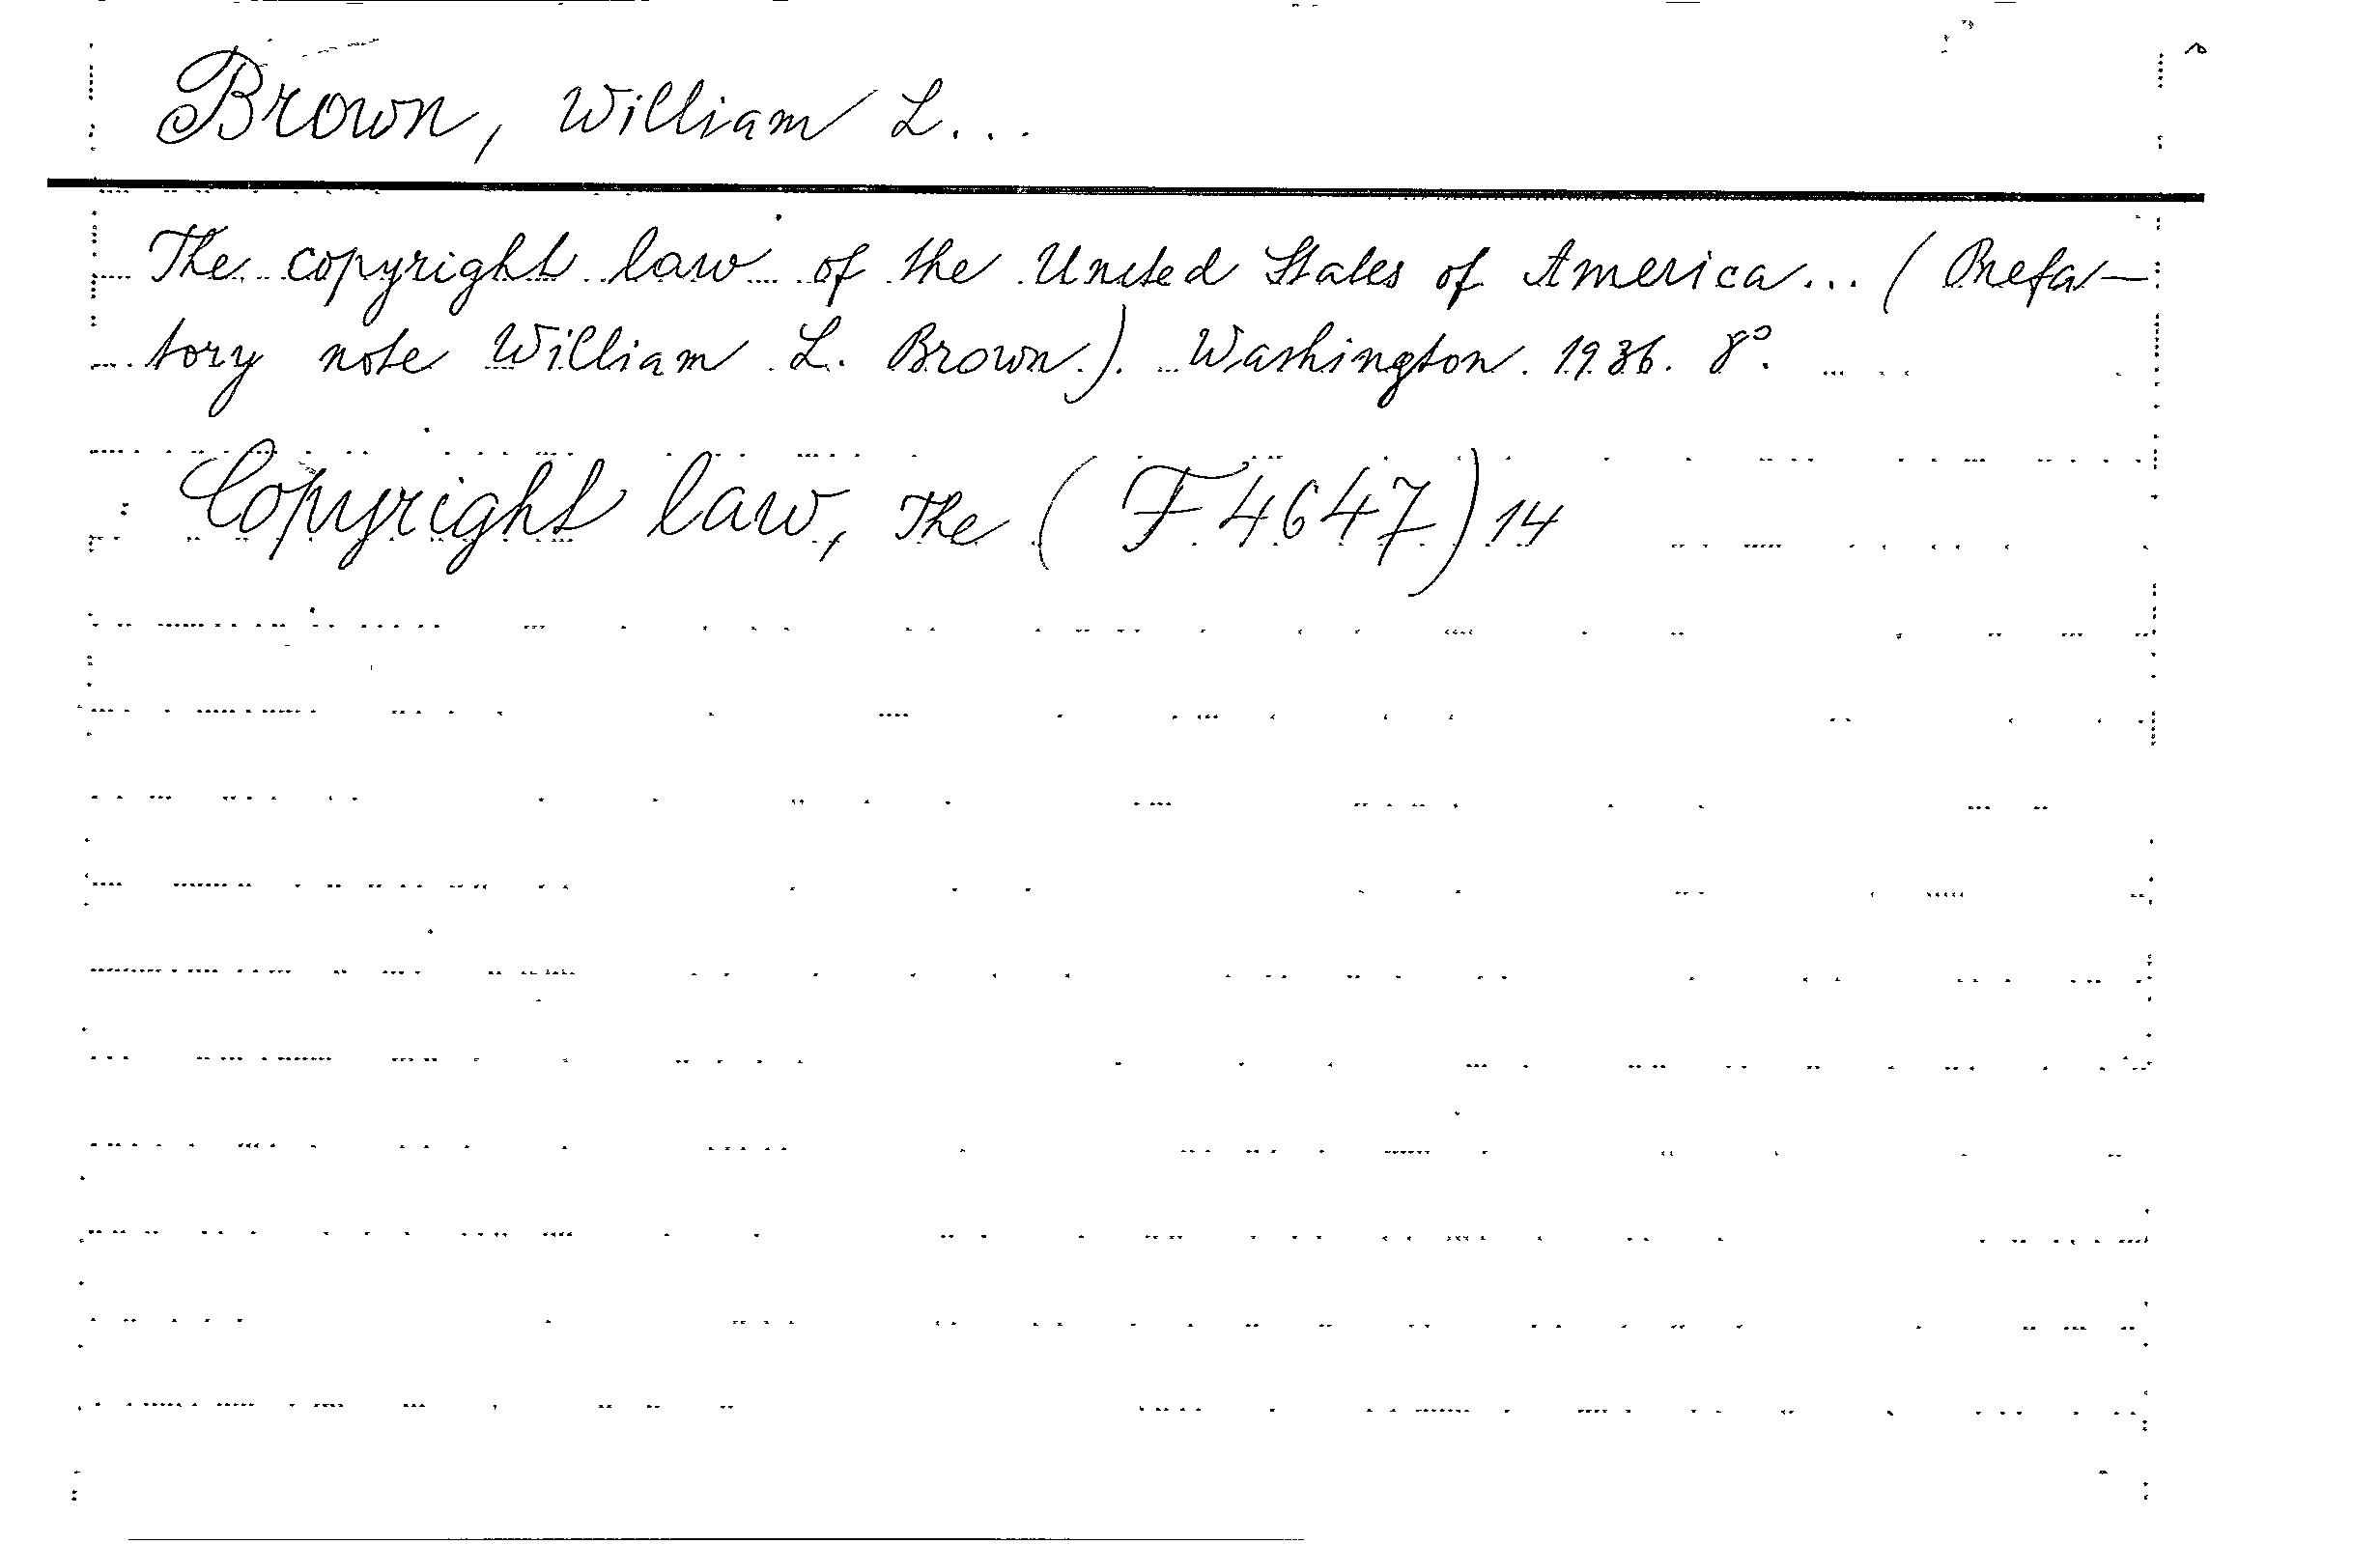 Brown, William L...
The copyright law of the United States of America... (Prefa-
tory note William L. Brown.). Washington. 1936. 8°.
Copyright law, The (F 4647) 14